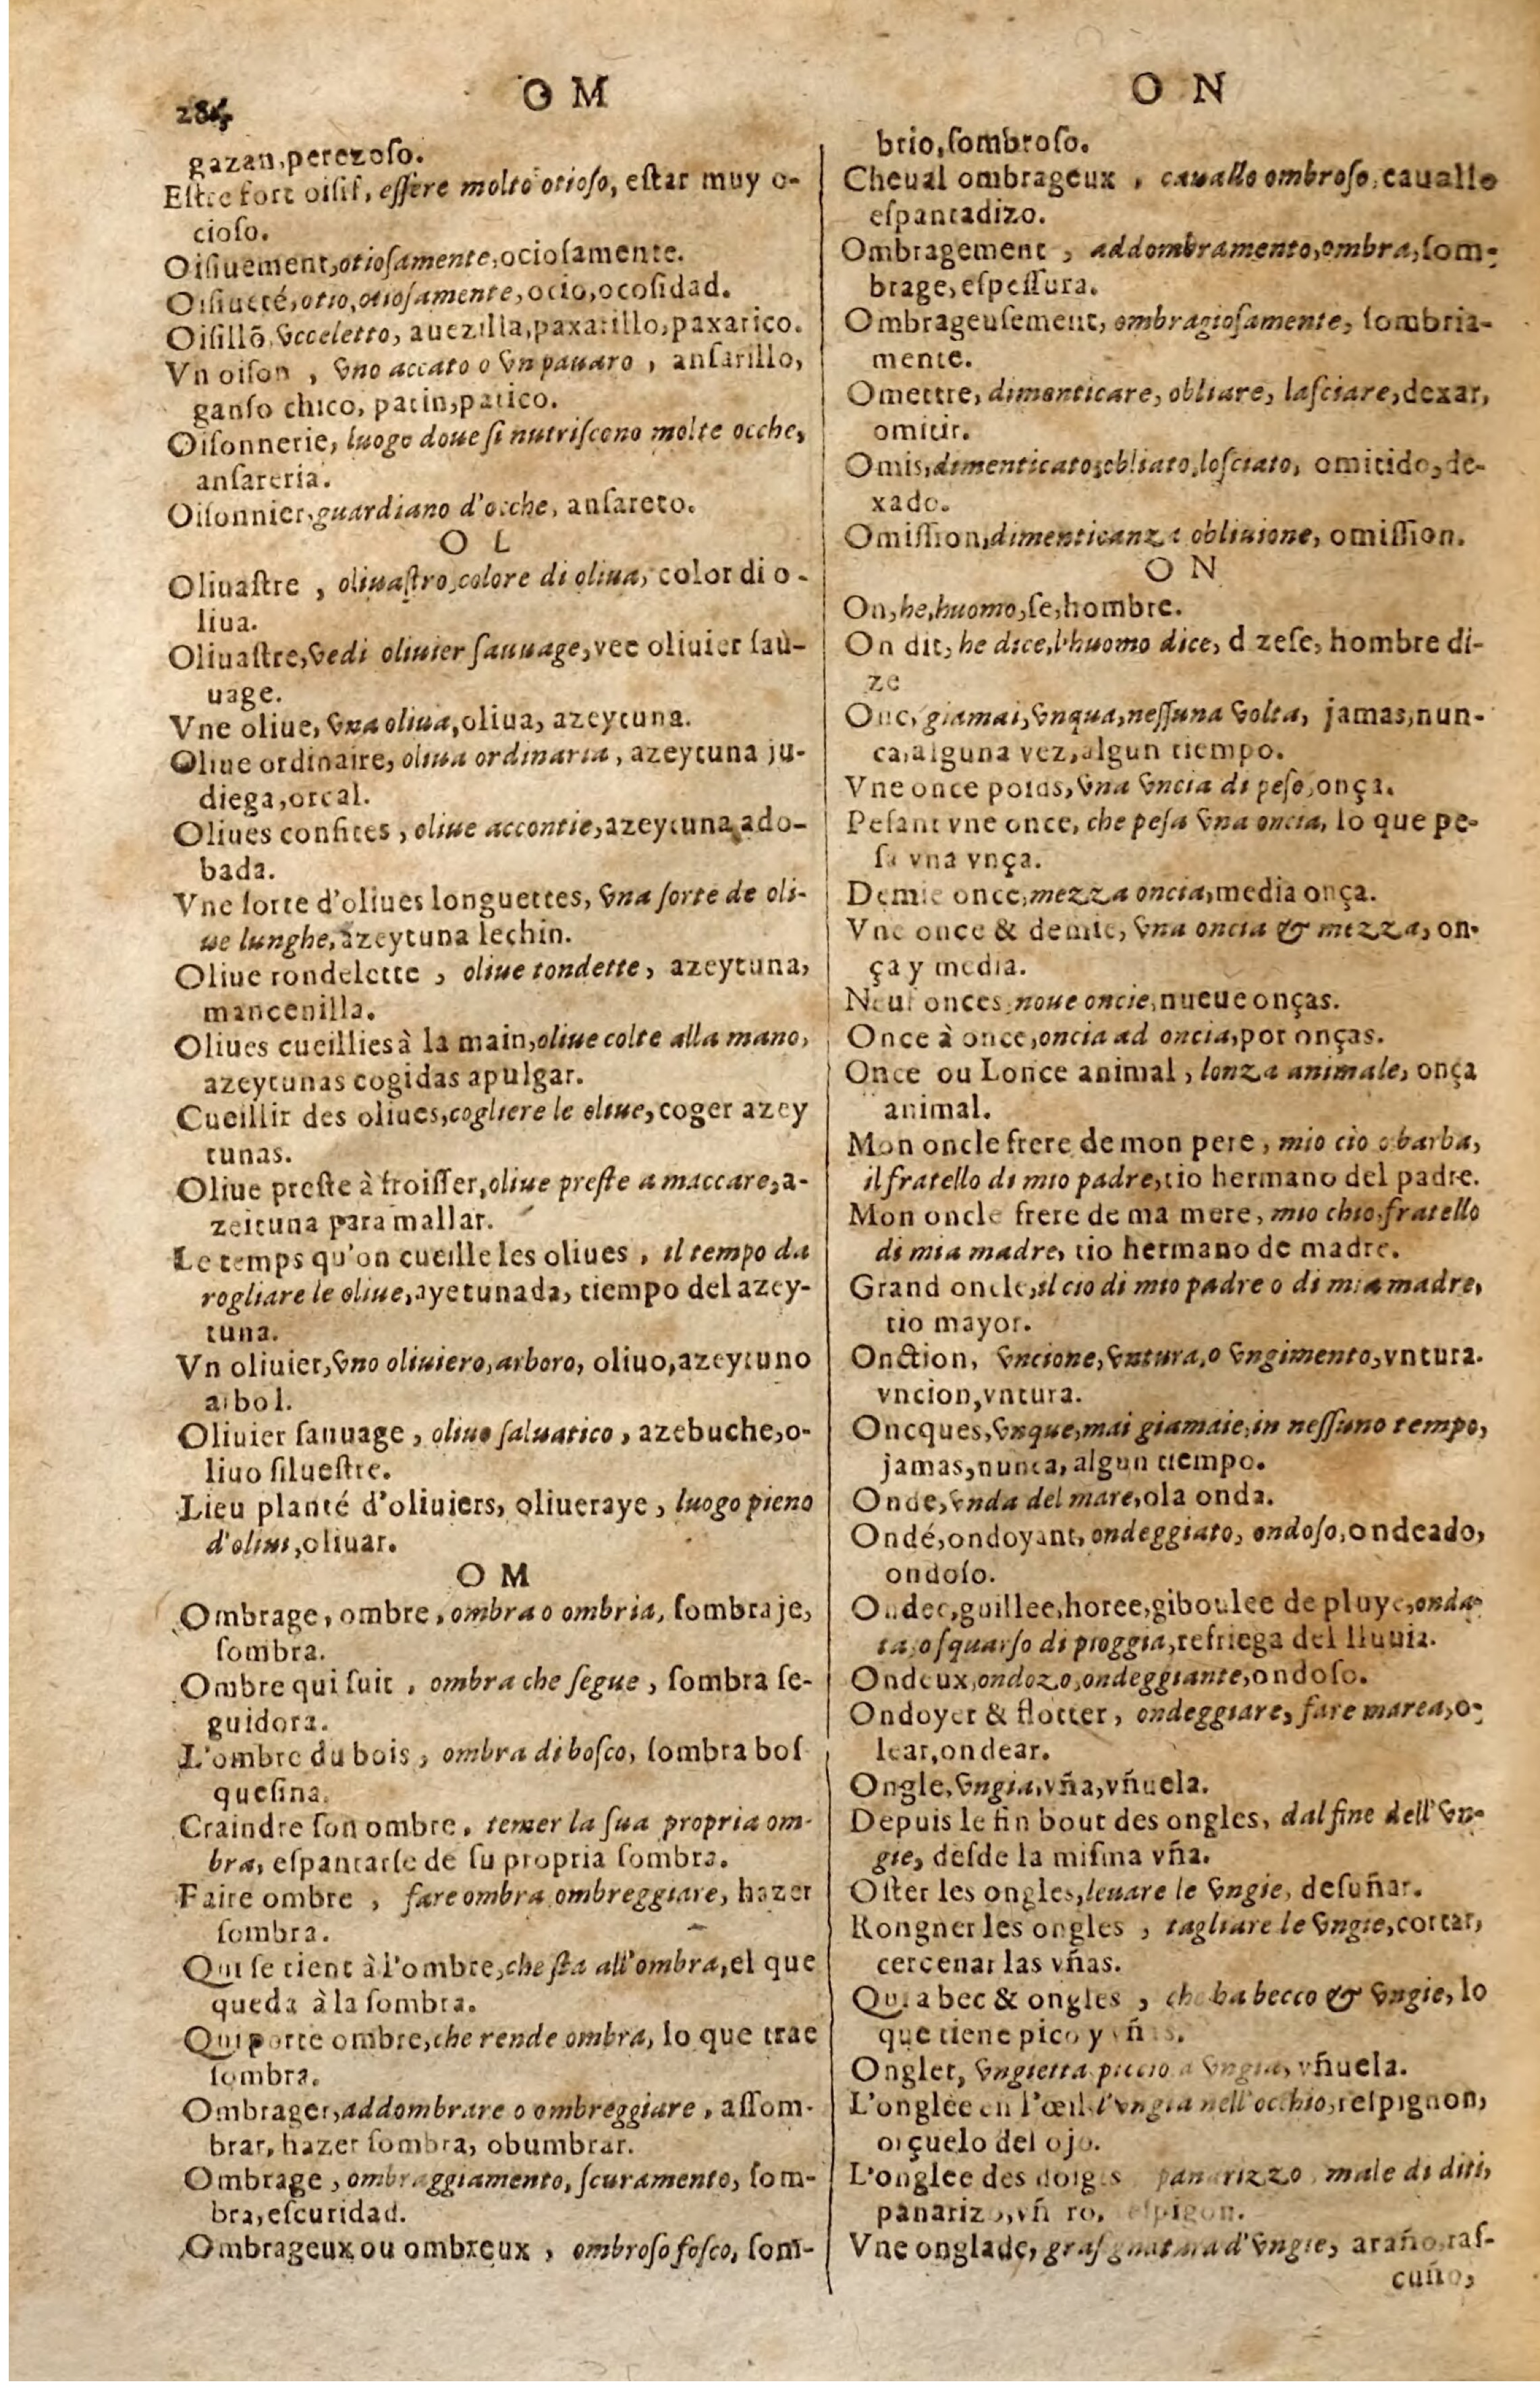 O M
gazan,perezoſo.
Eſtre fort oiſif, eſſere molto otioſo, eſtar muy o-
cioſo.
Oiſiuement,otioſamente,ocioſamente.
Oiſiueté,otio,otioſamente,ocio,ocoſidad.
Oiſillõ,vcceletto, auezilla,paxarillo,paxarico.
Vn oiſon , vno accato o vn pauaro , anſarillo,
ganſo chico, patin,patico.
Oiſonnerie, luogo doue ſi nutriſcono molte ocche,
anſareria.
Oiſonnier,guardiano d'ocche, anſareto.
O L
Oliuaſtre , oliuaſtro,colore di oliua, color di o-
liua.
Oliuaſtre,vedi oliuier ſauuage,vee oliuier ſau-
uage.
Vne oliue, vna oliua,oliua, azeytuna.
Oliue ordinaire, oliua ordinaria, azeytuna ju-
diega,orcal.
Oliues confites , oliue accontie,azeytuna ado-
bada.
Vne ſorte d'oliues longuettes, vna ſorte de oli-
ue lunghe,azeytuna lechin.
Oliue rondelette , oliue tondette, azeytuna,
mancenilla.
Oliues cueillies à la main,oliue colte alla mano,
azeytunas cogidas apulgar.
Cueillir des oliues,cogliere le oliue,coger azey
tunas.
Oliue preſte à froiſſer,oliue preſte a maccare,a-
zeituna para mallar.
Le temps qu'on cueille les oliues , il tempo da
rogliare le oliue,ayetunada, tiempo del azey-
tuna.
Vn oliuier,vno oliuiero,arboro, oliuo,azeytuno
arbol.
Oliuier ſauuage , oliuo ſaluatico , azebuche,o-
liuo ſilueſtre.
Lieu planté d'oliuiers, oliueraye , luogo pieno
d'oliui,oliuar.
O M
Ombrage, ombre, ombra o ombria, ſombraje,
ſombra.
Ombre qui ſuit , ombra che ſegue , ſombra ſe-
guidora.
L'ombre du bois , ombra di boſco, ſombra boſ
queſina.
Craindre ſon ombre, temer la ſua propria om-
bra, eſpantarſe de ſu propria ſombra.
Faire ombre , fare ombra ombreggiare, hazer
ſombra.
Qui ſe tient à l'ombre,che ſta all'ombra,el que
queda à la ſombra.
Qui porte ombre,che rende ombra, lo que trae
ſombra.
Ombrager,addombrare o ombreggiare , aſſom-
brar, hazer ſombra, obumbrar.
Ombrage , ombraggiamento, ſcuramento, ſom-
bra,eſcuridad.
Ombrageux ou ombreux , ombroſo foſco, ſom-
O N
brio,ſombroſo.
Cheual ombrageux , cauallo ombroſo,cauallo
eſpantadizo.
Ombragement , addombramento,ombra,ſom-
brage,eſpeſſura.
Ombrageuſement, ombragioſamente, ſombria-
mente.
Omettre, dimenticare, obliare, laſciare,dexar,
omitir.
Omis,dimenticato,obliato,loſciato, omitido,de-
xado.
Omiſſion,dimenticanza obliuione, omiſſion.
O N
On,he,huomo,ſe,hombre.
On dit, he dice,l'huomo dice, d zeſe, hombre di-
ze
Onc, giamai,vnqua,neſſuna volta, jamas,nun-
ca,alguna vez,algun tiempo.
Vne once poids,vna vncia di peſo,onça.
Peſant vne once, che peſa vna oncia, lo que pe-
ſa vna vnça.
Demie once,mezza oncia,media onça.
Vne once & demie, vna oncia & mezza, on-
ça y media.
Neuf onces,noue oncie,nueue onças.
Once à once,oncia ad oncia,por onças.
Once ou Lonce animal , lonza animale, onça
animal.
Mon oncle frere de mon pere , mio cio o barba,
il fratello di mio padre,tio hermano del padre.
Mon oncle frere de ma mere , mio chio,fratello
di mia madre, tio hermano de madre.
Grand oncle,il cio di mio padre o di mia madre,
tio mayor.
Onction, vncione,vntura,o vngimento,vntura.
vncion,vntura.
Oncques,vnque,mai giamaie,in neſſuno tempo,
jamas,nunca, algun tiempo.
Onde,vnda del mare,ola onda.
Ondé,ondoyant, ondeggiato, ondoſo,ondeado,
ondoſo.
Ondee,guillee,horee,giboulee de pluye,onda-
ta,o ſquarſo di pioggia,refriega del lluuia.
Ondeux,ondozo,ondeggiante,ondoſo.
Ondoyer & flotter , ondeggiare, fare marea,o-
lear,ondear.
Ongle,vngia,vña,vñuela.
Depuis le fin bout des ongles, dal fine dell'vn-
gie, deſde la miſma vña.
Oſter les ongles,leuare le vngie, deſuñar.
Rongner les ongles , tagliare le vngie,cortar,
cercenar las vñas.
Qui a bec & ongles , che ha becco & vngie, lo
que tiene pico y vñas.
Onglet, vngietta piccio a vngia, vñuela.
L'onglee en l'œil,l'vngia nell'occhio,reſpignon,
orçuelo del ojo.
L'onglee des doigts panarizzo male di diti,
panarizo,vñ ro, eſpigon.
Vne onglade, graſgnatura d'vngie, araño,raſ-
cuño,